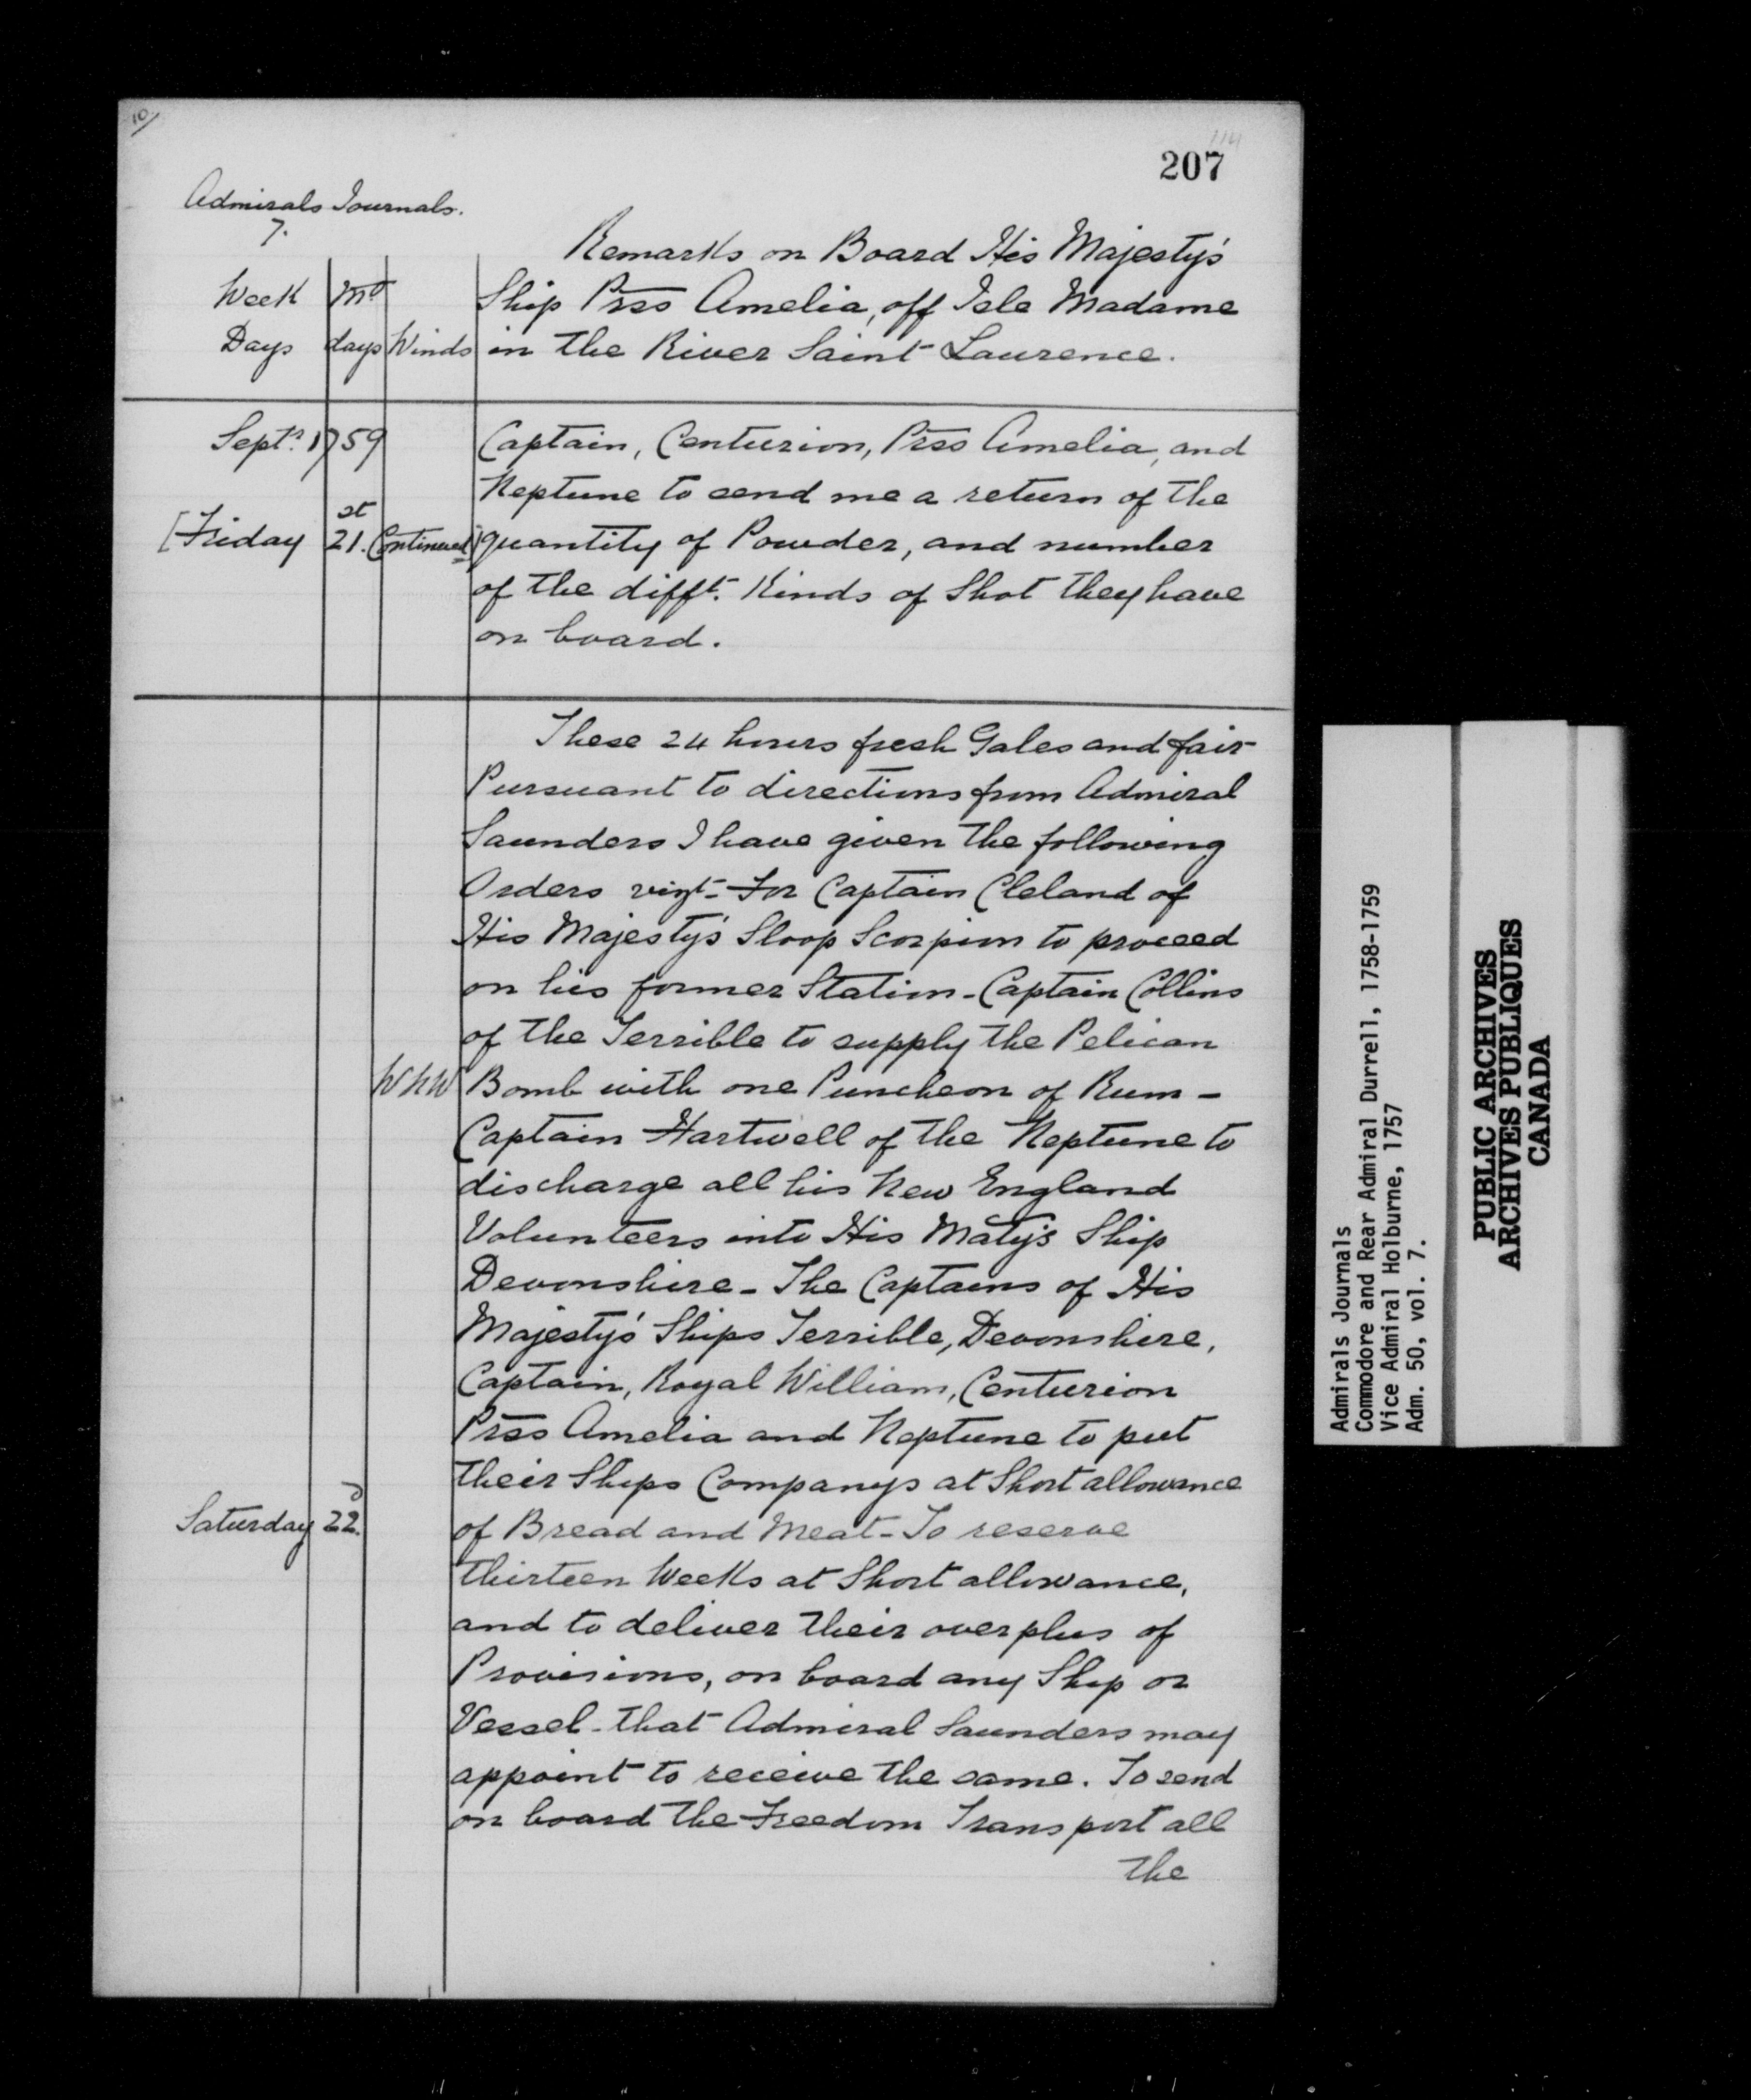 10/
114
207
Admirals Journals.
7.
Remarks on Board His Majesty's
Week Mo Ship Prss Amelia, off Isle Madame
Days days Winds in the River Saint Laurence.
Septr. 1759 Captain, Centurion, Prss Amelia, and
Neptune to send me a return of the
[Friday 21.st Continued] quantity of Powder, and number
of the difft. Kinds of Shot they have
on board.
These 24 hours fresh Gales and fair
Pursuant to directions from Admiral
Saunders I have given the following
Orders vizt- For Captain Cleland of
His Majesty's Sloop Scorpion to proceed
on his former Station - Captain Collins
of the Terrible to supply the Pelican
WNW Bomb with one Puncheon of Rum -
Captain Hartwell of the Neptune to
discharge all his New England
Volunteers into His Maty's Ship
Devonshire - The Captains of His
Majesty's Ships Terrible, Devonshire,
Captain, Royal William, Centurion
Prss Amelia and Neptune to put
their Ships Companys at Short allowance
Saturday 22.d of Bread and Meat - To reserve
thirteen Weeks at Short allowance,
and to deliver their overplus of
Provisions, on board any Ship or
Vessel - that Admiral Saunders may
appoint to receive the same. To send
on board the Freedom Transport all
the
Admirals Journals
Commodore and Rear Admiral Durrell, 1758-1759
Vice Admiral Holburne, 1757
Adm. 50, vol. 7.
PUBLIC ARCHIVES
ARCHIVES PUBLIQUES
CANADA